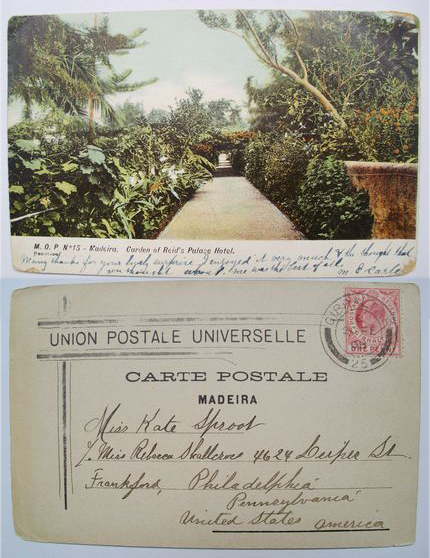 M. O. P. Nº 15 - Madeira. Garden of Reid's Palace Hotel.
Many thanks for your lovely surprise I enjoyed it very much, & the thought that
you thought about me was the best of all.
M. E. Carla
UNION POSTALE UNIVERSELLE
CARTE POSTALE
MADEIRA
Miss Kate Sproot
Miss Rebecca Shallcross 4624 Leiper St.
Frankford, Philadelphia
Pennsylvania
United States America
GIBRALTAR
25